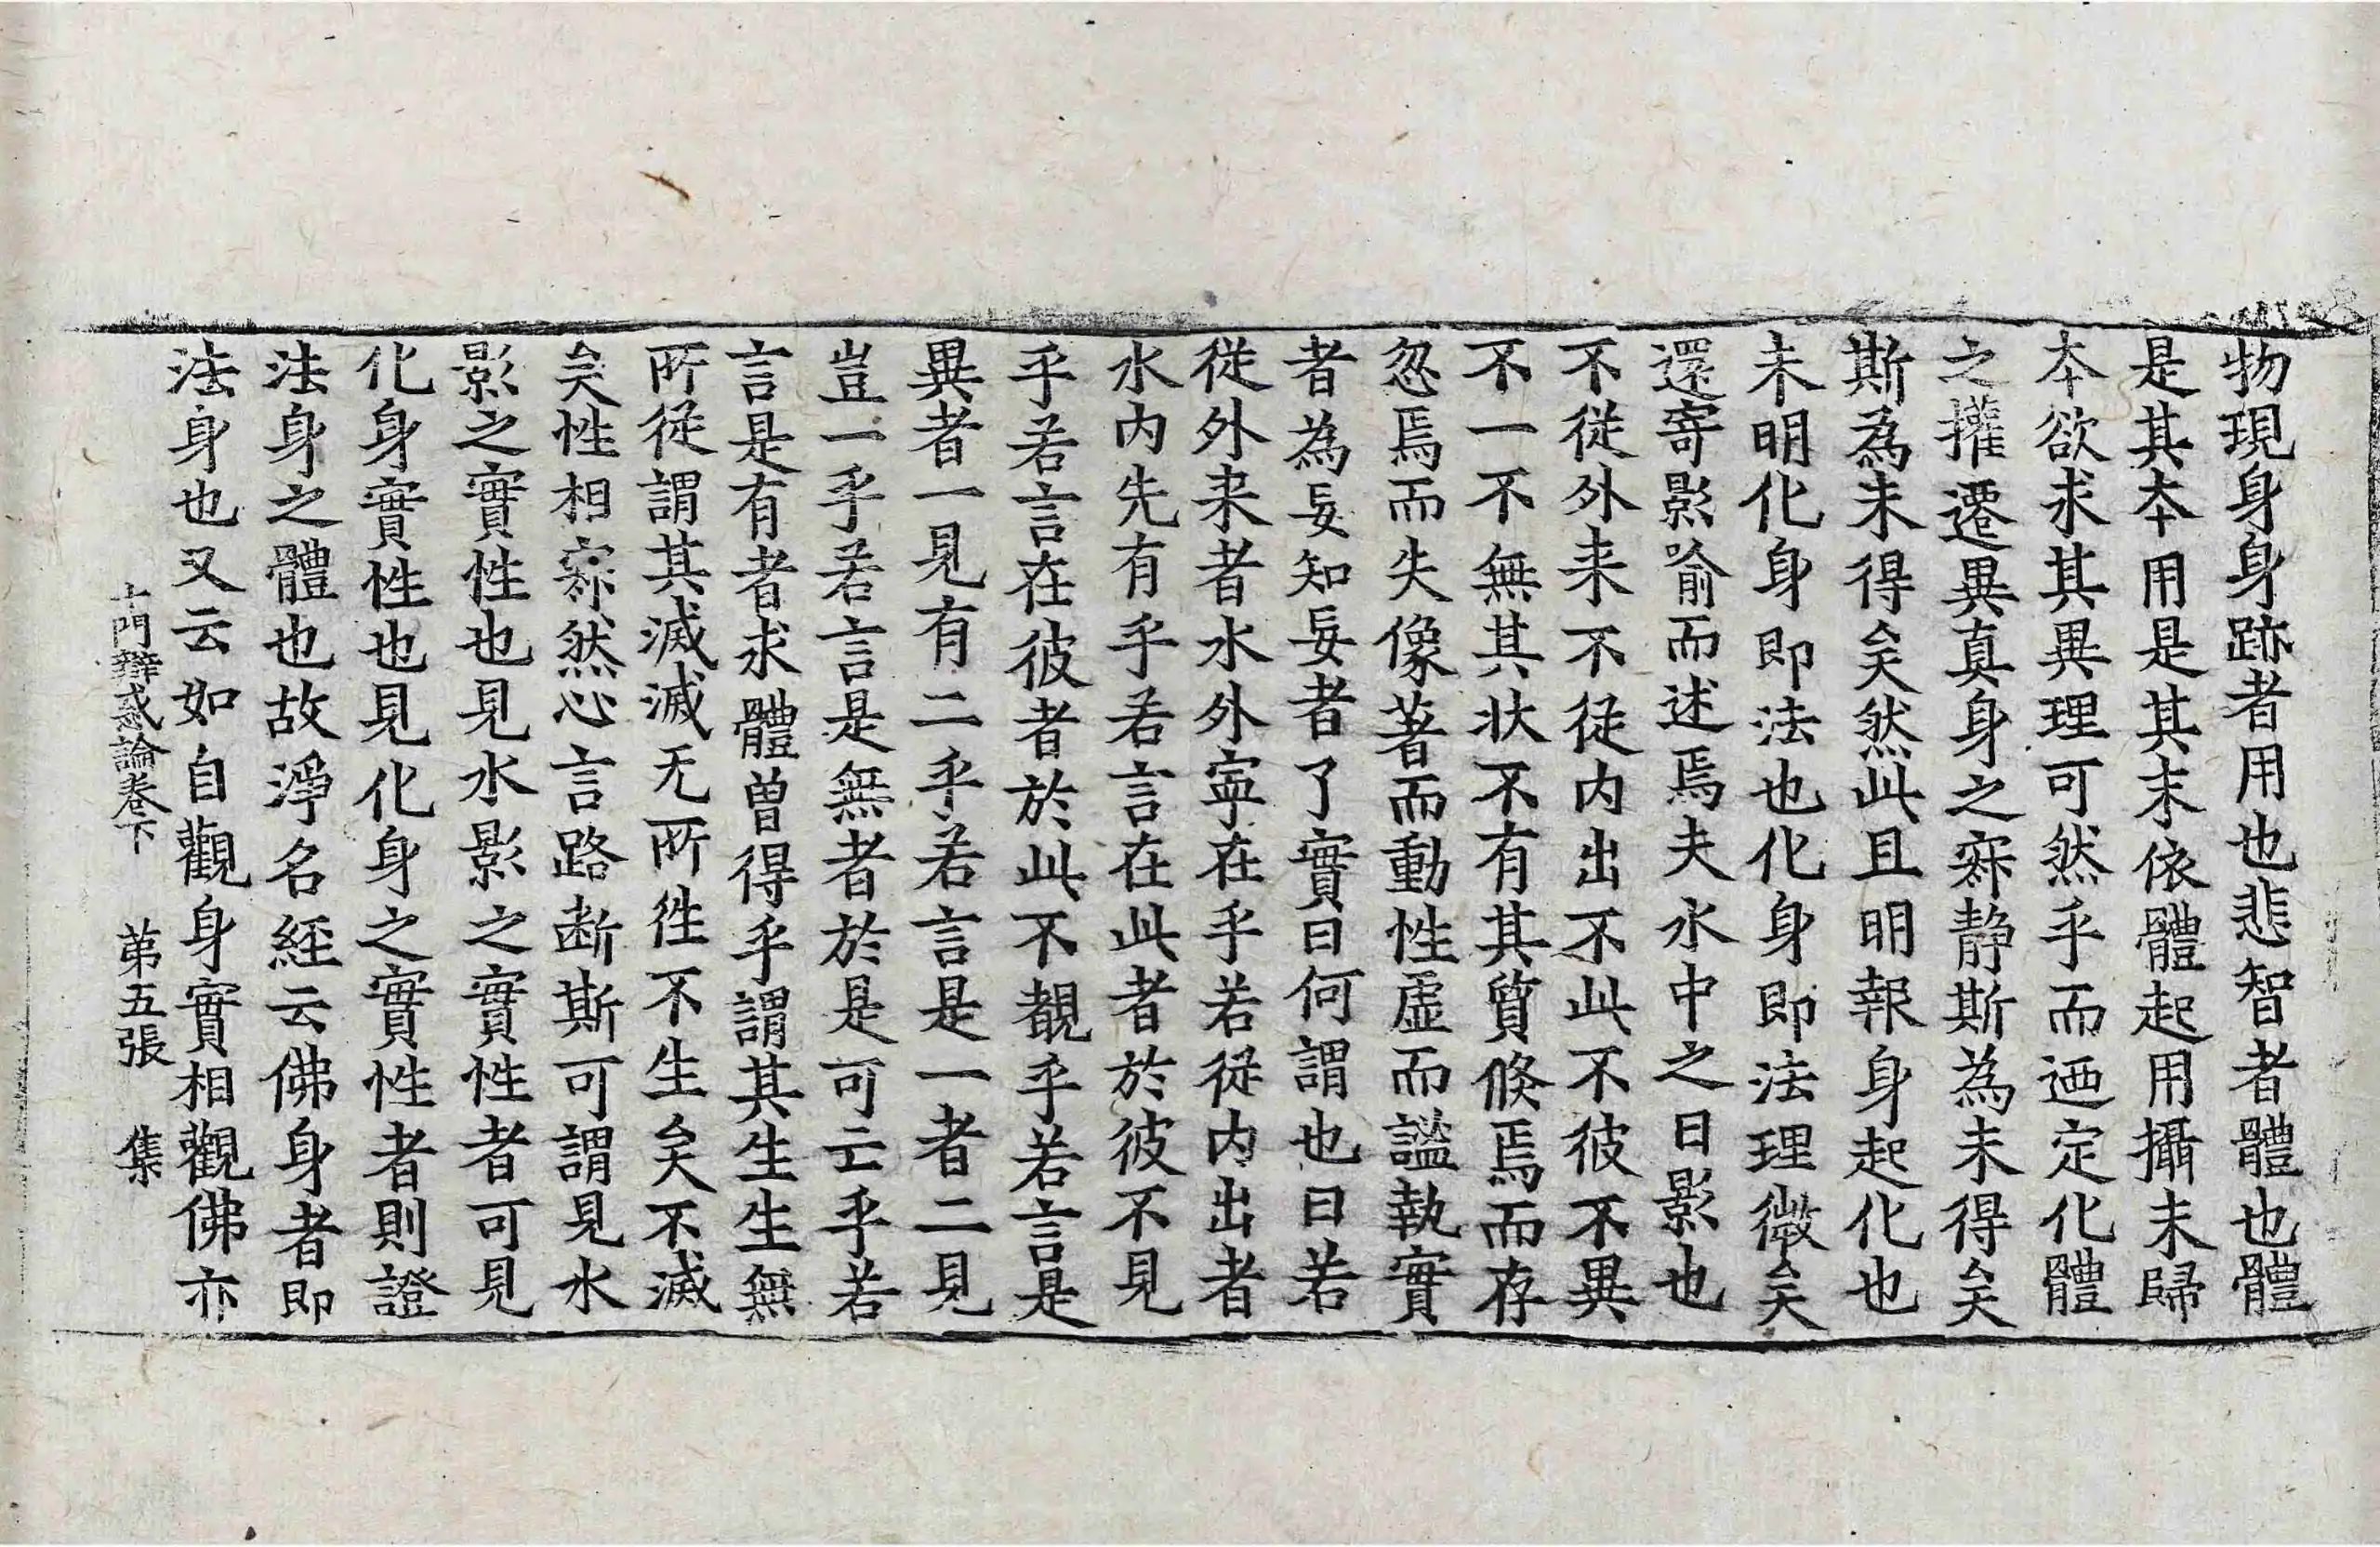 物現身身跡者用也悲智者體也體
是其夲用是其末依體起用攝末歸
夲欲求其異理可然乎而迺定化體
之攉遷異真身之寂静斯為未得矣
斯為未得矣然此且明報身起化也
未明化身即法也化身即法理微矣
還寄影喻而述焉夫水中之日影也
不從外来不從内出不此不彼不異
不一不無其状不有其質倏焉而存
忽焉而失像著而動性虛而謐執實
者為妄知妄者了實曰何謂也曰若
從外来者水外寧在乎若從内出者
水内先有乎若言在此者於彼不見
乎若言在彼者於此不覩乎若言是
異者一見有二乎若言是一者二見
豈一乎若言是無者於是可亡乎若
言是有者求體曾得乎謂其生生無
所從謂其滅滅无所徃不生矣不滅
矣性相寂然心言路断斯可謂見水
影之實性也見水影之實性者可見
化身實性也見化身之實性者則證
法身之體也故淨名経云佛身者即
法身也又云如自觀身實相觀佛亦
十門辯惑論卷下 苐五張 集